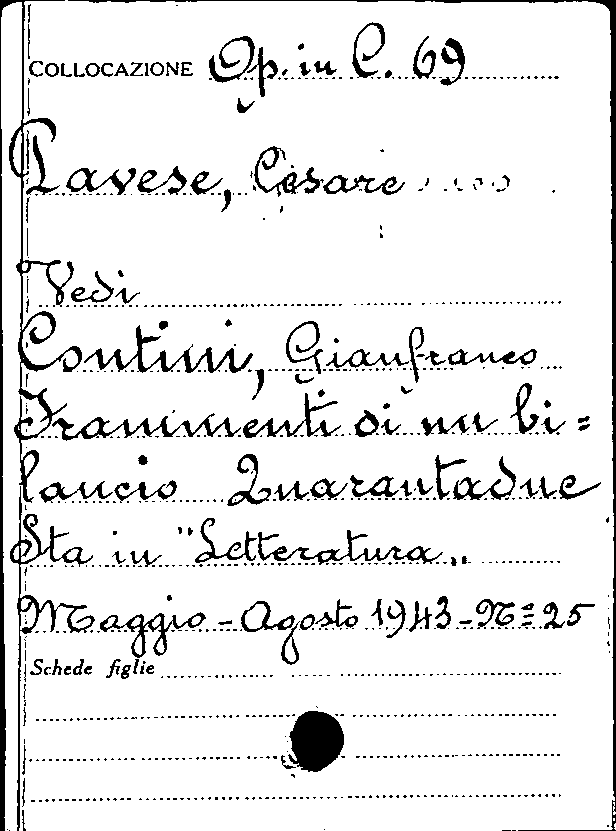 COLLOCAZIONE Op. in C. 69
Pavese, Cesare
Vedi
Contini, Gianfranco
Frammenti di un bi=
lancio Quarantadue
Sta in "Letteratura„
Maggio - Agosto 1943 - Nº 25
Schede figlie